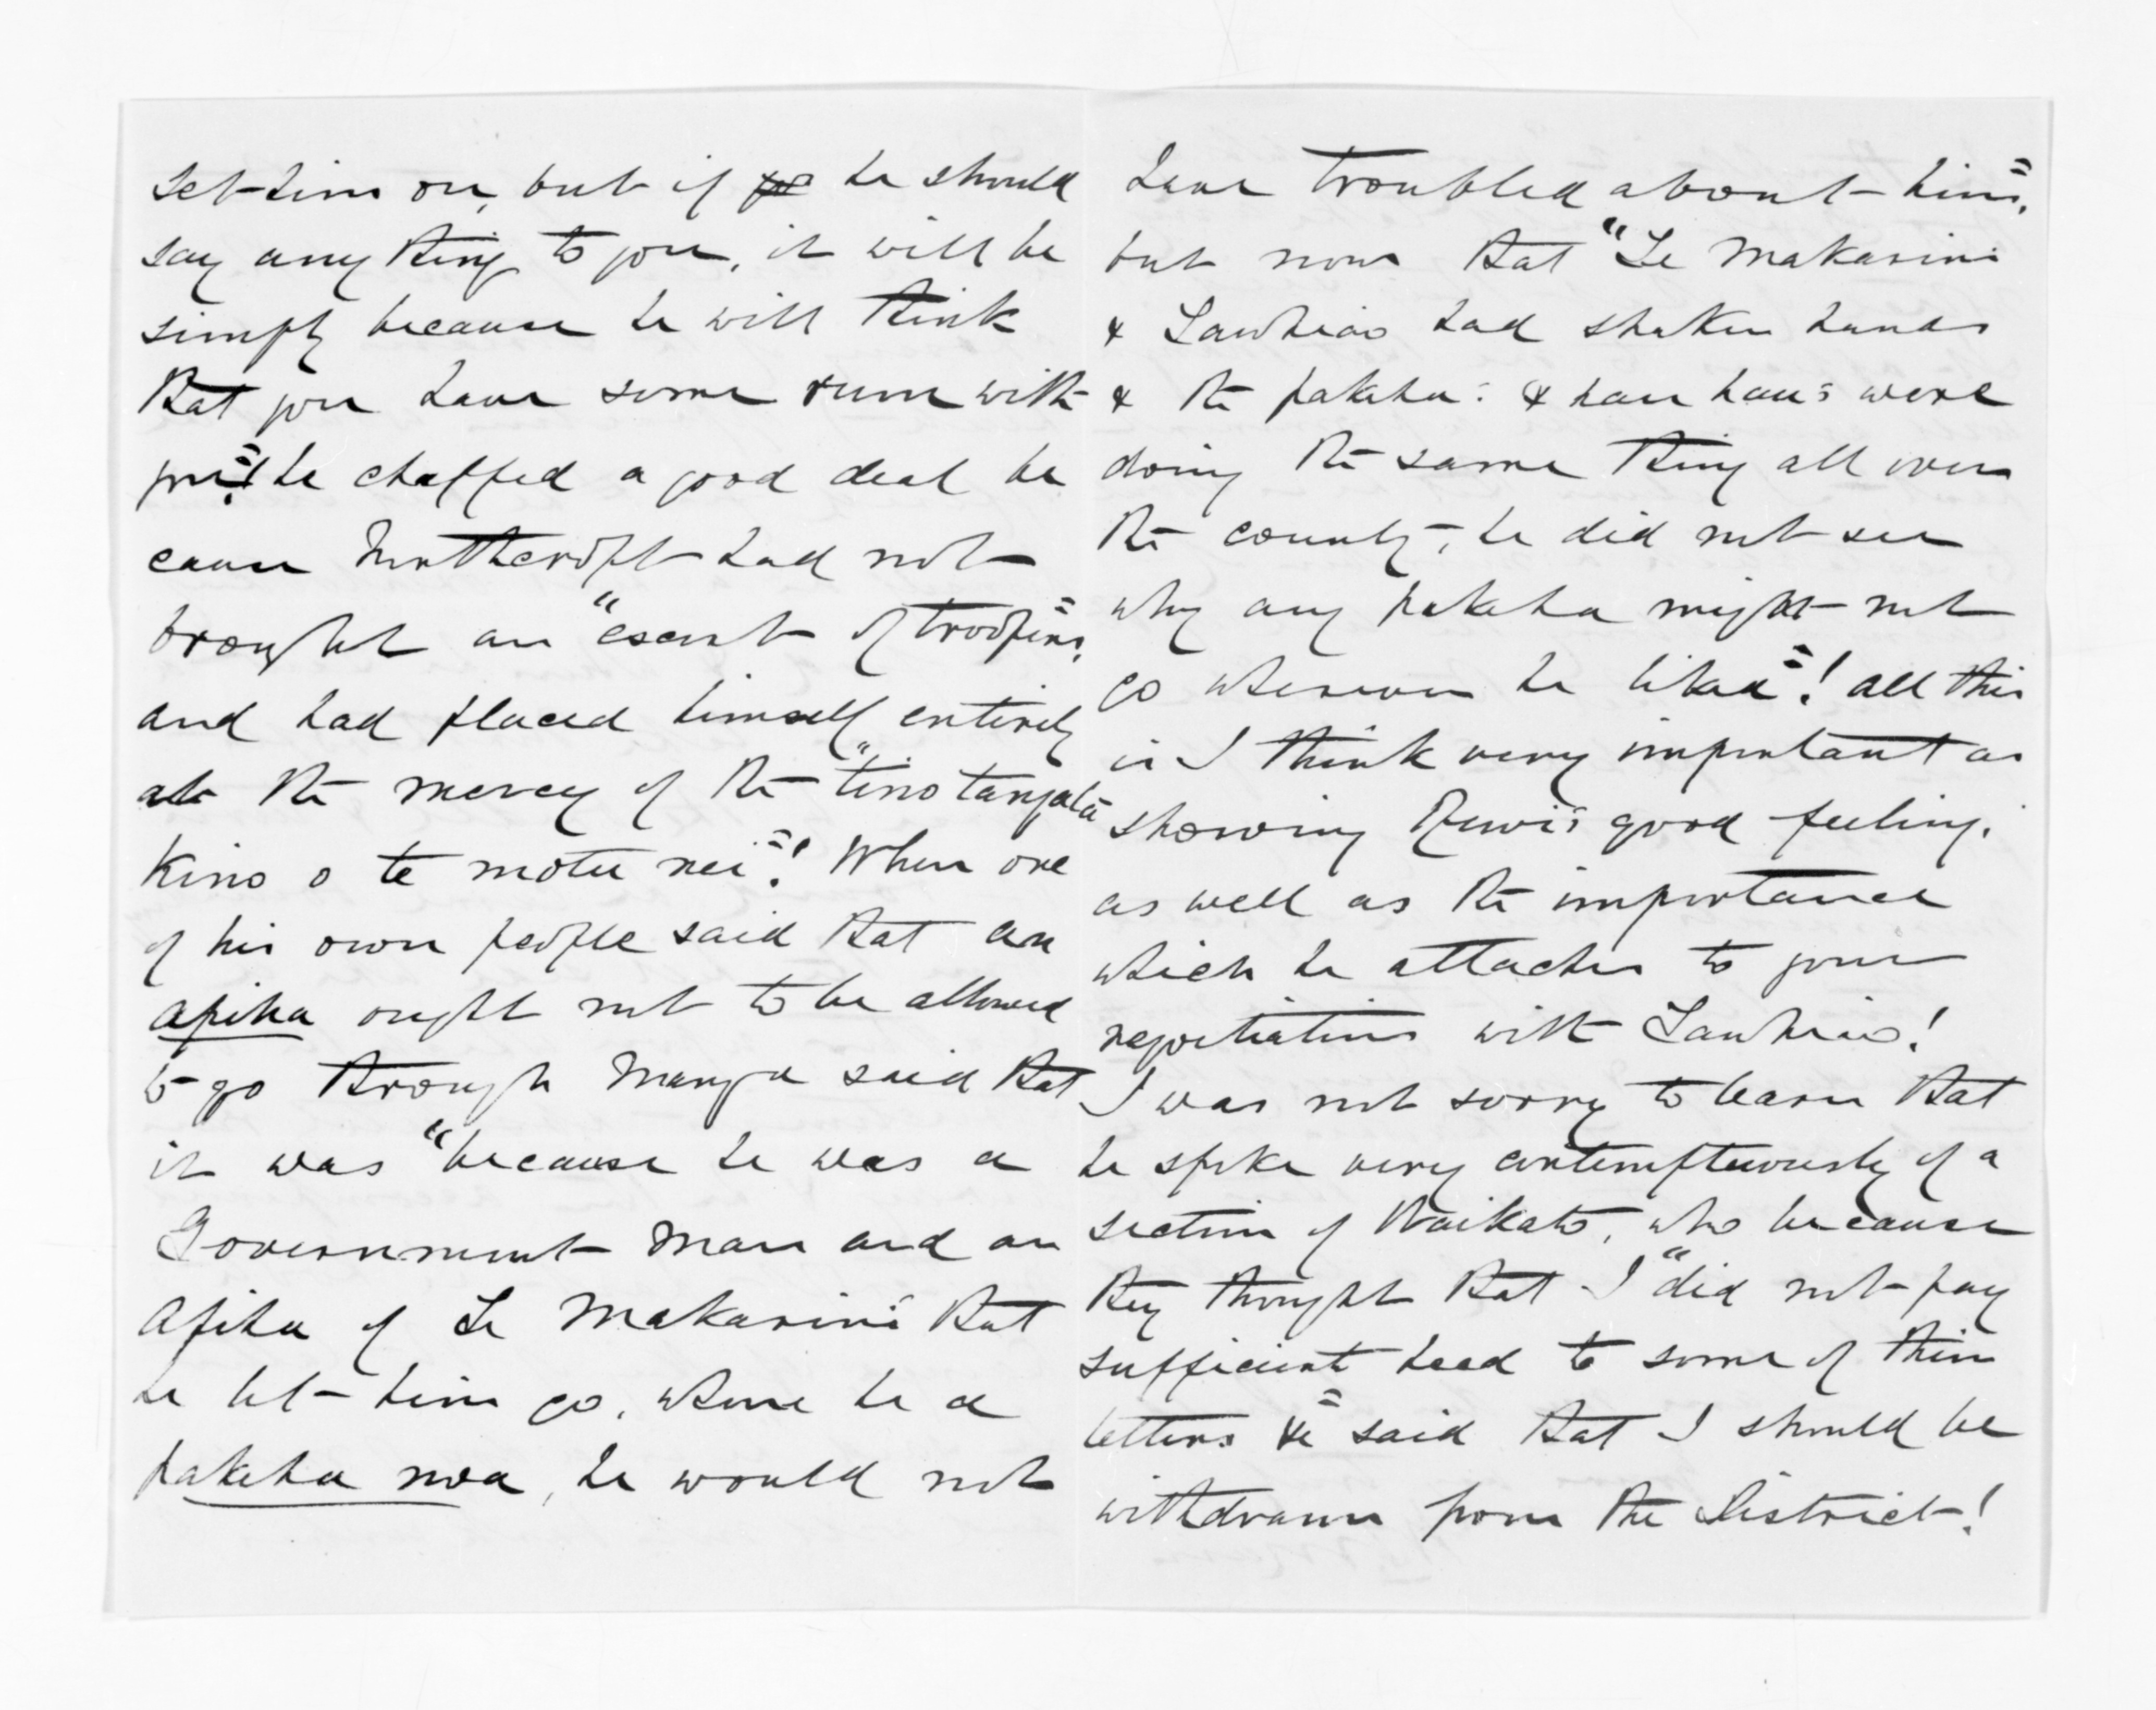 set him on, but if he should
say any thing to you, it will be
simply because he will think
that you have some rum with
you"! he chaffed a good deal be
cause Northcroft had not
brought an "escort of troopers",
and had placed himself entirely
at the mercy of the "tino tangata
kino o te motu nei"! When one
of his own people said that an
apiha ought not to be allowed
to go through Manga said that
it was "because he was a
Government man and an
apiha of Te Makarini's that
he let him go. were he a
pakeha noa, he would not
have troubled about him",
but now that "Te Makarini
& Tawhiao had shaken hands
& the pakeha's & hau hau's were
doing the same thing all over
the country, he did not see
why any pakeha might not
go wherever he liked"! all this
is I think very important as
showing Rewi's good feeling,
as well as the importance
which he attaches to your
negotiations with Tawhiao!
I was not sorry to learn that
he spoke very contemptuously of a
section of Waikato, who because
they thought that I "did not pay
sufficient heed to some of their
letters &c" said that I should be
withdrawn from the District!